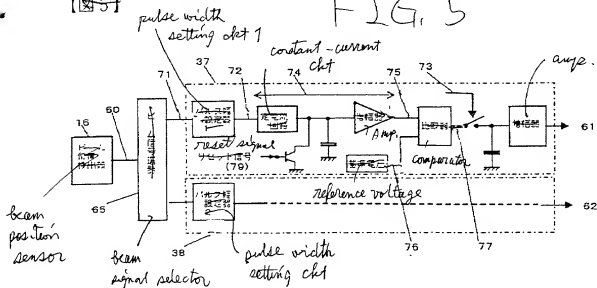 【図5】
FIG. 5
pulse width
setting ckt 1
constant-current
ckt
amp.
71
37
72
74
75
73
定電流
回路
増幅器
Amp.
比較器
comparator
増幅器
61
16
60
reset signal
リセット信号
(79)
基準電圧
reference voltage
77
76
パルス幅
設定器
62
65
38
beam
position
sensor
beam
signal selector
pulse width
setting ckt